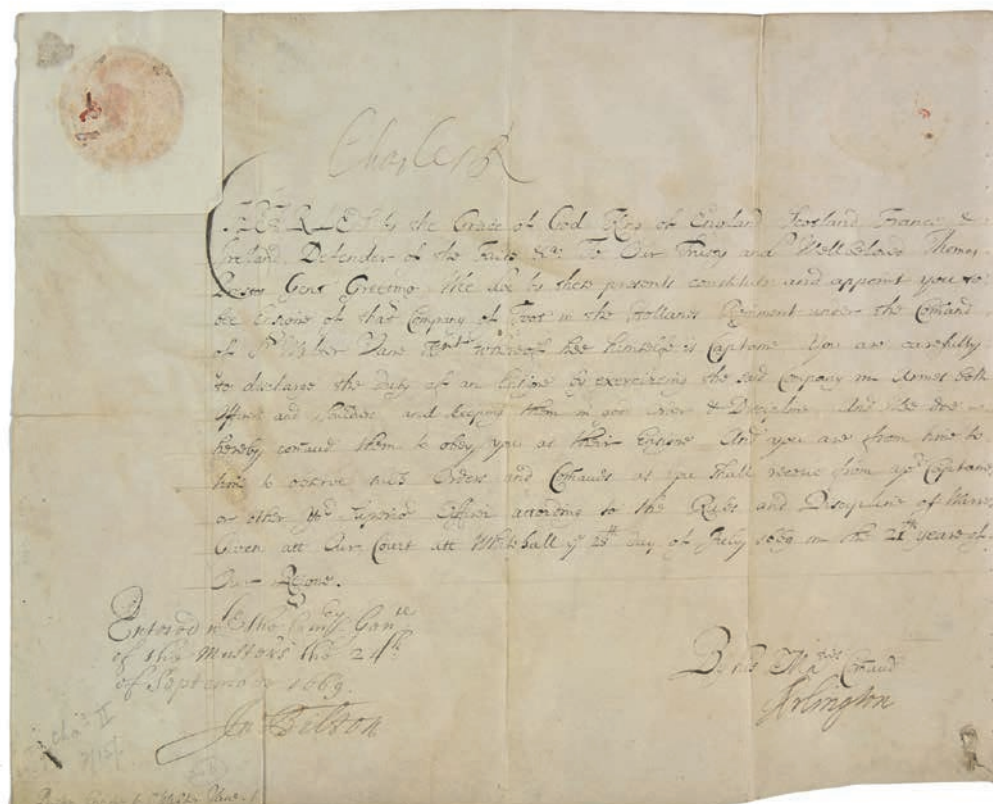 Charles R
CHARLES by the Grace of God King of England Scotland France &
Ireland Defender of the Faith &c: To Our Trusty and Welbeloved Thomas
Gent Greeting We doe by these presents constitute and appoint you to
be Ensigne of that Company of Foot in the Holland Regiment under the Comand
of Sr Walter Vane Knt whereof hee himselfe is Captaine You are carefully
to discharge the duty of an Ensigne by exercising the said Company in Armes both
Officers and Souldiers and keeping them in good Order & Discipline And Wee doe
hereby comand them to obey you as their Ensigne And you are from time to
time to observe such Orders and Comands as you shall receive from yor Captaine
or other yor Superior Officer according to the Rules and Discipline of Warre
Given att Our Court att Whitehall ye day of July 1669 in the 21th yeare of
Our Reigne.
Entered
of the Musters the 24th
of September 1669.
By his Maties Comand
Arlington
Jn Tilson
Chas II